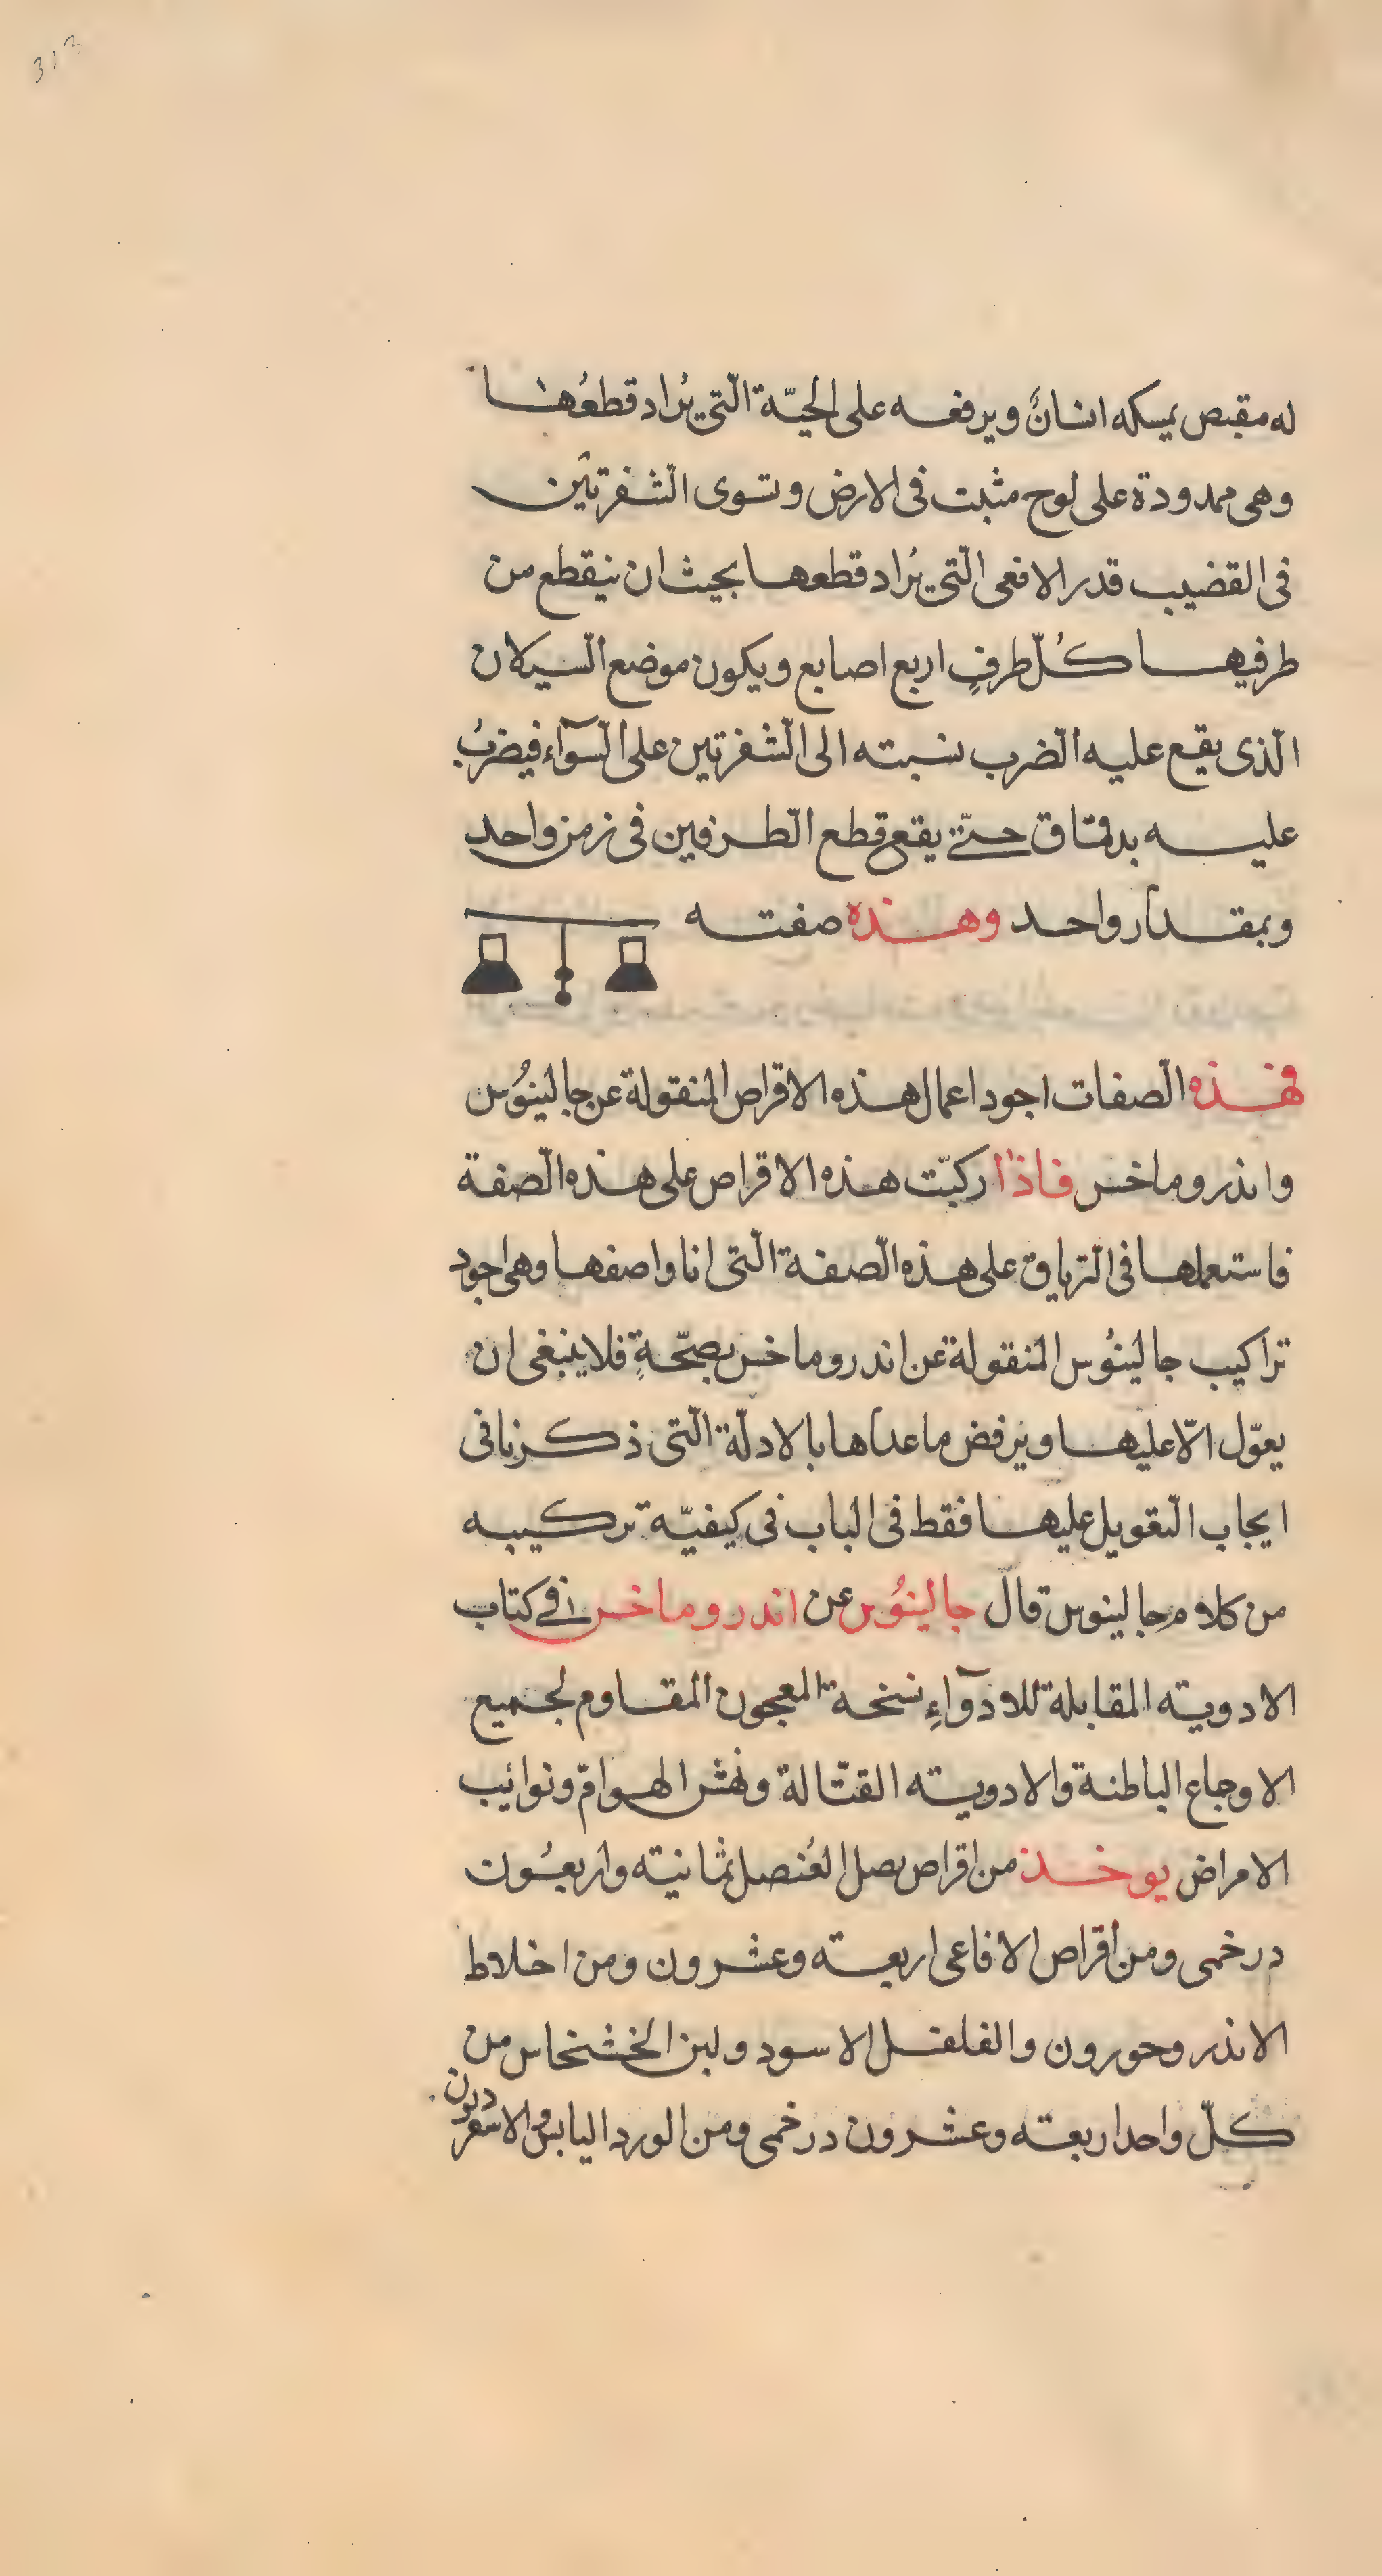 313
له مقبص يمسكه انسانٌ ويرفعه على الحيّة الّتى يُراد قطعُها
وهى ممدودة على لوح مثبت فى الارض وتسوى الشفرتين
فى القضيب قدر الافعى الّتى يُراد قطعها بحيث ان ينقطع من
طرفيها كُلّ طرفٍ اربع اصابع ويكون موضع السيلان
الّذى يقع عليه الضرب نسبته الى الشفرتين على السّوآء فيضربُ
عليه بدقاق حتّى يقع قطع الطّرفين فى زمن واحد
وبمقدار واحد وهذه صفته
فهذه الصّفات اجود اعمال هذه الاقراص المنقولة عن جالينُوس
واندروماخس فاذا ركبّت هذه الاقراص على هذه الصّفة
فاستعملها فى التّرياق على هذه الصّفة الّتى انا واصفها وهى اجود
تراكيب جالينُوس المنقولة عن اندروماخس بصحّةٍ فلا ينبغى ان
يعوّل الّا عليها ويرفض ما عداها بالادلّة الّتى ذكرنا فى
ايجاب التّعويل عليها فقط فى الباب فى كيفيّة تركيبه
من كلام جالينوس قال جالينُوس عن اندروماخس فى كتاب
الادوية المقابلة للادوآءِ نسخة المعجون المقاوم لجميع
الاوجاع الباطنة والادوية القتّالة ونهش الهوامّ ونوائب
الامراض يوخذ من اقراص بصل العُنصل ثمانية واربعُون
درخمى ومن اقراص الافاعى اربعة وعشرون ومن اخلاط
الاندروحورون والفلفل الاسود ولبن الخشخاس من
كلّ واحد اربعة وعشرون درخمى ومن الورد اليابس والاسقرديون